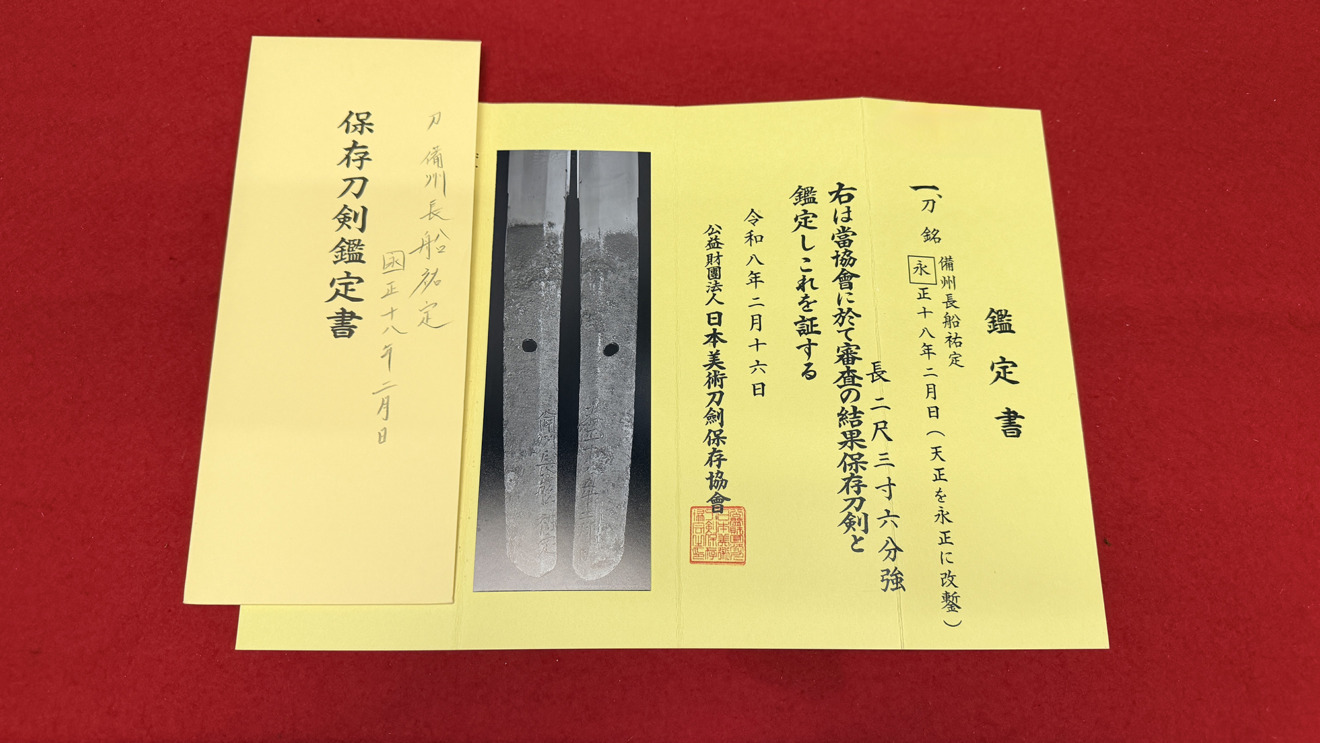 鑑定書
一、刀 銘 備州長船祐定
永正十八年二月日(天正を永正に改鏨)
長二尺三寸六分強
右は當協會に於て審査の結果保存刀剣と
鑑定しこれを証する
令和八年二月十六日
公益財團法人 日本美術刀劍保存協會
刀 備州長船祐定
永正十八年二月日
保存刀剣鑑定書